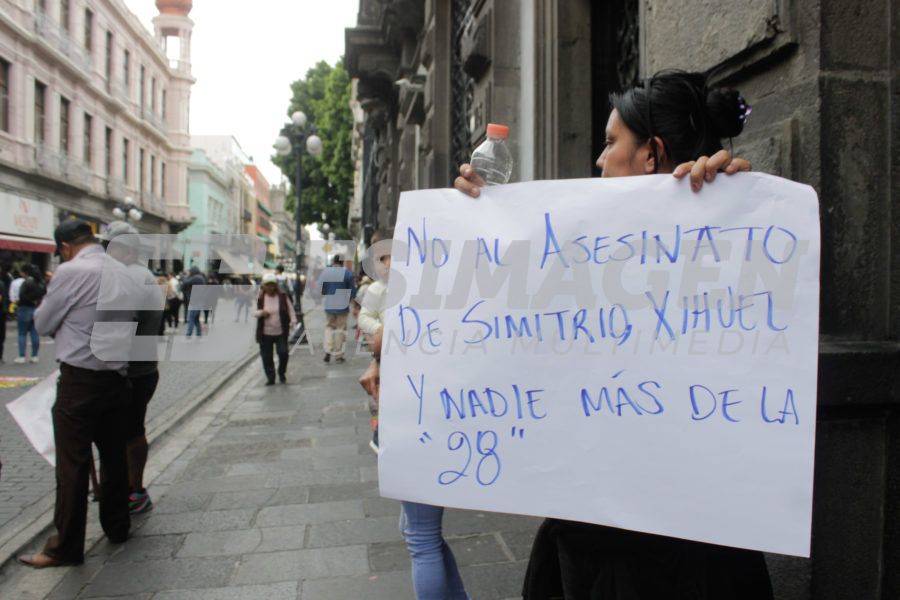 No al Asesinato
De Simitrio, Xihuel
Y nadie más de la
"28"
ESIMAGEN
AGENCIA MULTIMEDIA